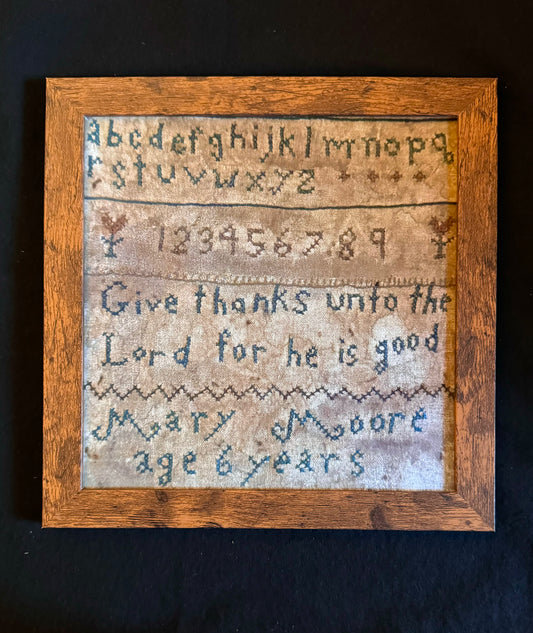 abcdefghijklmnopq
rstuvwxyz
123456789
Give thanks unto the
Lord for he is good
Mary Moore
age 6 years